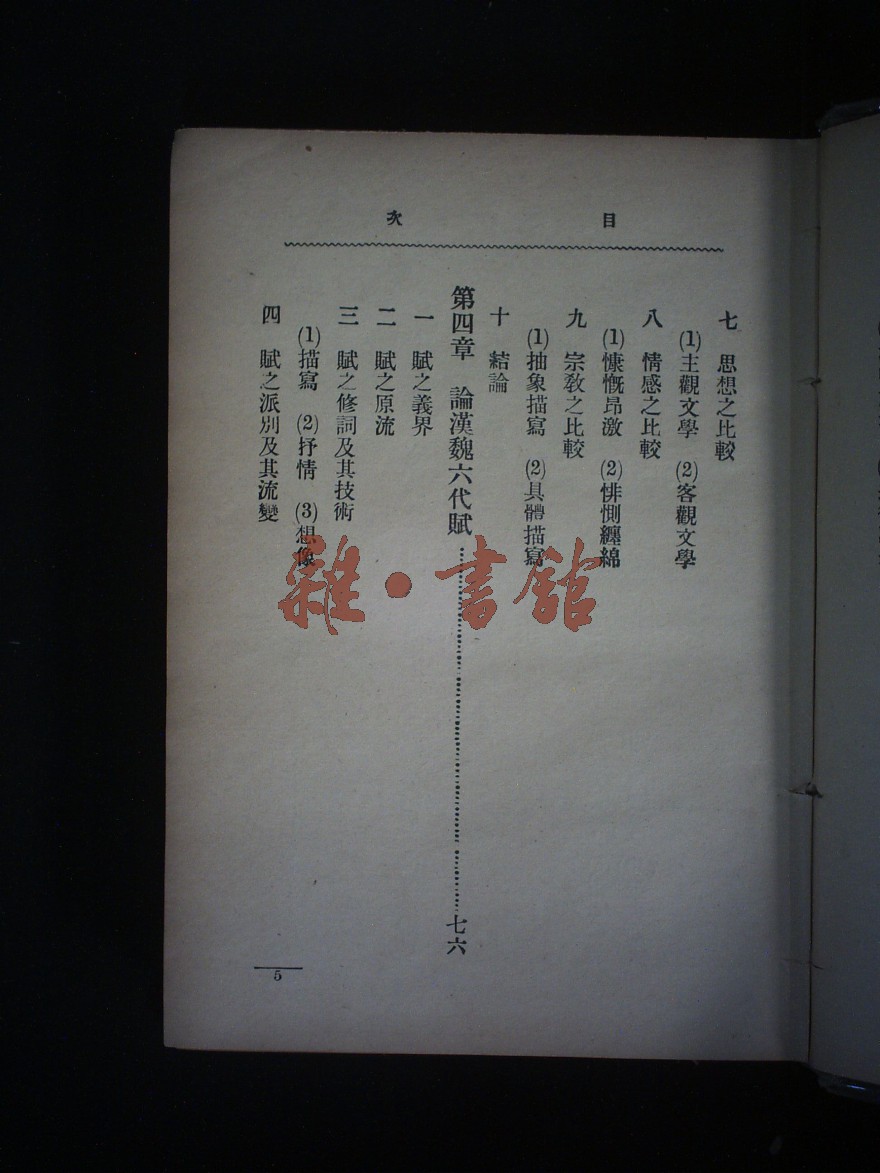 目次
七　思想之比較
(1)主觀文學　(2)客觀文學
八　情感之比較
(1)慷慨昂激　(2)悱惻纏綿
九　宗教之比較
(1)抽象描寫　(2)具體描寫
十　結論
第四章　論漢魏六代賦……七六
一　賦之義界
二　賦之原流
三　賦之修詞及其技術
(1)描寫　(2)抒情　(3)想像
四　賦之派別及其流變
5
雜·書館